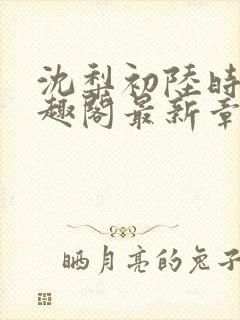 沈梨初陸時
趣閣最新章
晒月亮的兔子